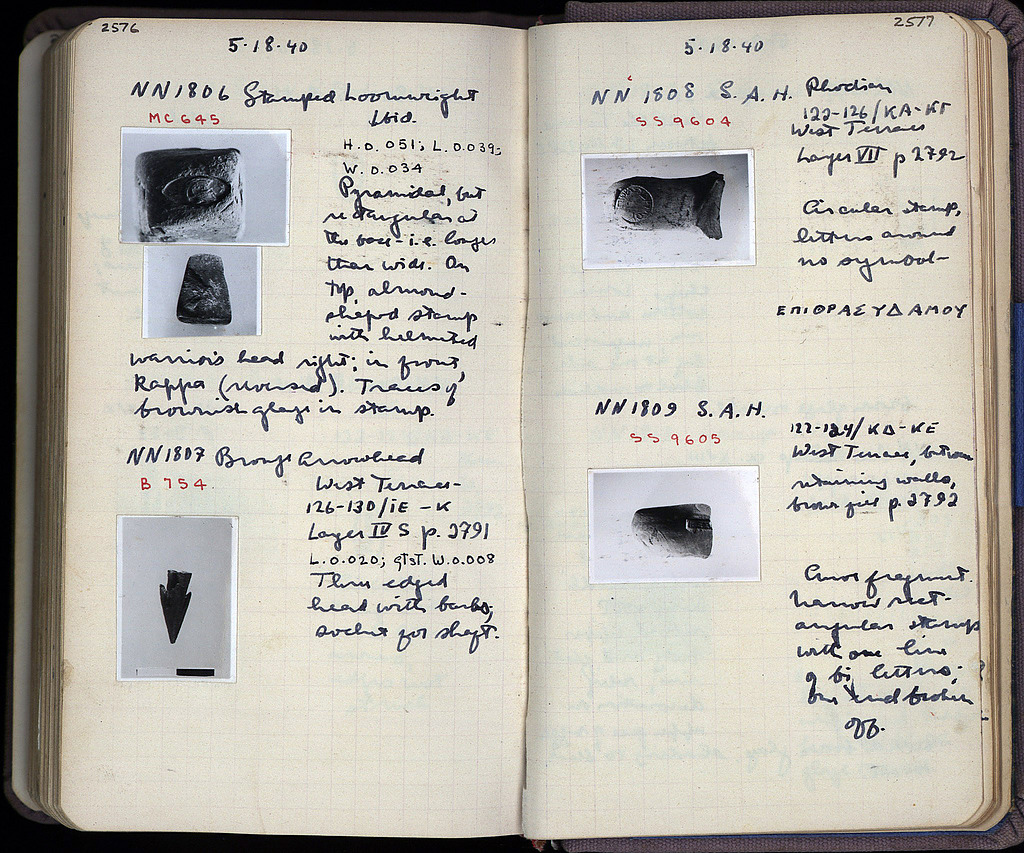 2576
5-18-40
NN1806 Stamped Loomweight
MC 645
Ibid.
H.0.051; L.0.039;
W.0.034
Pyramidal, but
rectangular at
the base - i.e. longer
than wide. On
top, almond-
shaped stamp
with helmeted
warrior's head right; in front,
Kappa (reversed). Traces of
brownish glaze in stamp.
NN1807 Bronze Arrowhead
B 754
West Terrace -
126-130/ΙΕ - Κ
Layer IV S p. 2791
L.0.020; gtst. W.0.008
Three edged
head with barbs;
socket for shaft.
2577
5-18-40
NN 1808 S.A.H. Rhodian
SS 9604
122-126/ΚΑ-ΚΓ
West Terrace
Layer VII p 2792
Circular stamp,
letters around
no symbol -
ΕΠΙΘΡΑΣΥΔΑΜΟΥ
NN1809 S.A.H.
SS 9605
122-124/ΚΔ-ΚΕ
West Terrace, between
retaining walls,
brown fill p. 2792
fragment.
Narrow rect-
angular stamp
with one line
of letters;
end broken
off.